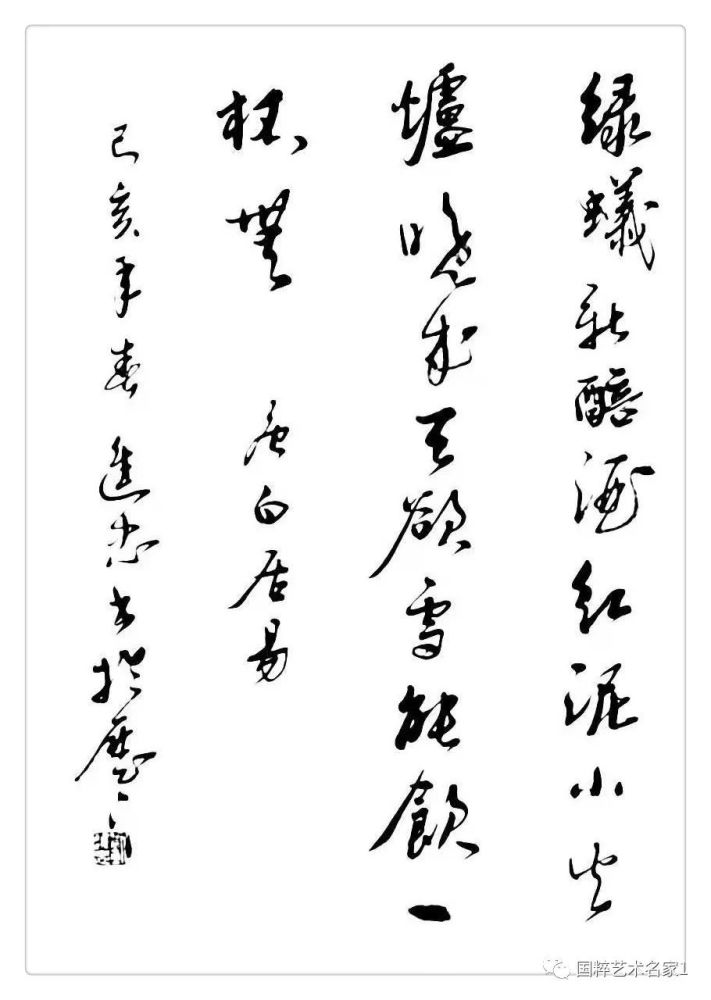 绿蟻新醅酒红泥小火
爐晚来天欲雪能飲一
杯無 唐白居易
己亥年春進忠书於歷下
国粹艺术名家1